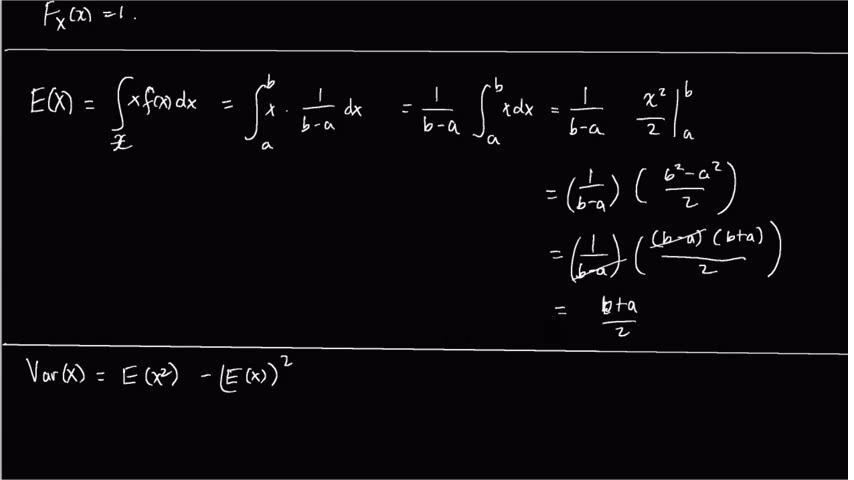 F_X(x) = 1.
E(X) = ∫_𝒳 x f(x) dx = ∫_a^b x · 1/(b-a) dx = 1/(b-a) ∫_a^b x dx = 1/(b-a) x²/2 |_a^b
= (1/(b-a)) ((b² - a²)/2)
= (1/(b-a)) ((b-a)(b+a)/2)
= (b+a)/2
Var(X) = E(X²) - (E(X))²